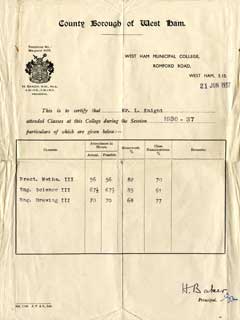 County Borough of West Ham.
WEST HAM MUNICIPAL COLLEGE,
ROMFORD ROAD,
WEST HAM, E.15.
21 JUN 1937
This is to certify that Mr. L. Knight
attended Classes at this College during the Session 1936-37
particulars of which are given below:-
Classes Attendance in Hours Homework % Class Examinations % Remarks
Actual. Possible.
Pract. Maths. III 56 56 82 70
Eng. Science III 67½ 67½ 83 61
Eng. Drawing III 70 70 68 77
H. Baker
Principal.